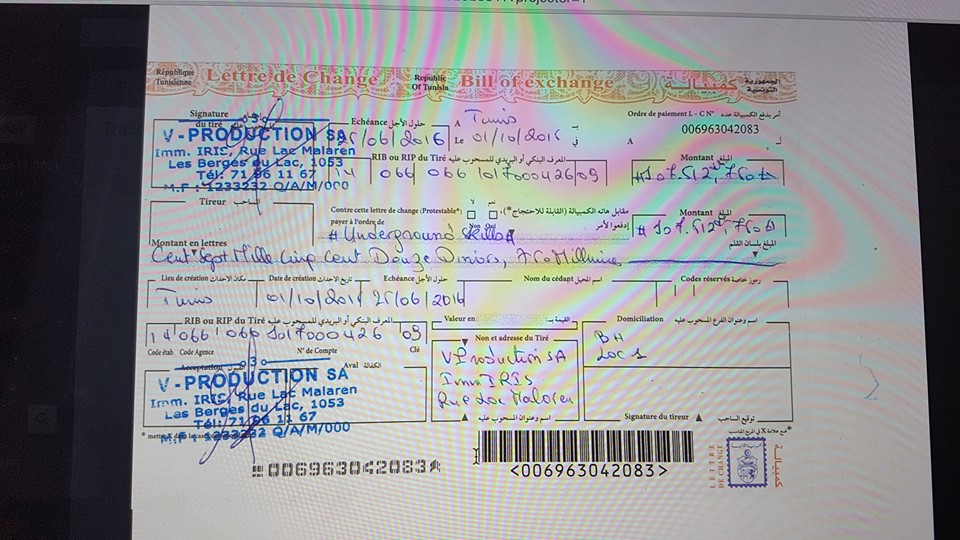 République Tunisienne Lettre de Change Republic Of Tunisia Bill of exchange كمبيالة الجمهورية التونسية
Signature du tiré
Echéance حلول الأجل A Tunis بـ
Ordre de paiement L - C N° أمر بدفع الكمبيالة عدد
25/06/2016 Le في
006963042083 A لـ
V-PRODUCTION SA
Imm. IRIS, Rue Lac Malaren
Les Berges du Lac, 1053
Tél: 71 96 11 67
M.F : 1233232 Q/A/M/000
RIB ou RIP du Tiré المعرف البنكي أو البريدي للمسحوب عليه
Montant المبلغ
14 066 066 1017000426 09
Tireur الساحب
Contre cette lettre de change (Protestable*) مقابل هاته الكمبيالة (القابلة للاحتجاج*)
لا نعم
payer à l'ordre de إدفعوا لأمر
Montant المبلغ
# Underground Skills #
# 107.512,760 #
Montant en lettres المبلغ بلسان القلم
Cent Sept Mille Cinq Cent Douze Dinars, 760 Millimes
Lieu de création مكان الإحداث Date de création تاريخ الإحداث Echéance حلول الأجل Nom du cédant اسم المحيل Codes réservés رموز خاصة
Tunis 25/06/2016
RIB ou RIP du Tiré المعرف البنكي أو البريدي للمسحوب عليه
Valeur en : القيمة بـ :
Domiciliation اسم وعنوان الفرع المسحوب عليه
14 066 066 1017000426 09
Code étab. Code Agence N° de Compte Clé
Nom et adresse du Tiré
BH
Lac 1
Acceptation Aval الكفالة
V-PRODUCTION SA
Imm. IRIS, Rue Lac Malaren
Les Berges du Lac, 1053
Tél: 71 96 11 67
M.F : 1233232 Q/A/M/000
V Production SA
Imm IRIS
Rue Lac Malaren
اسم وعنوان المسحوب عليه
Signature du tireur توقيع الساحب
006963042083
<006963042083>
LETTRE DE CHANGE
كمبيالة